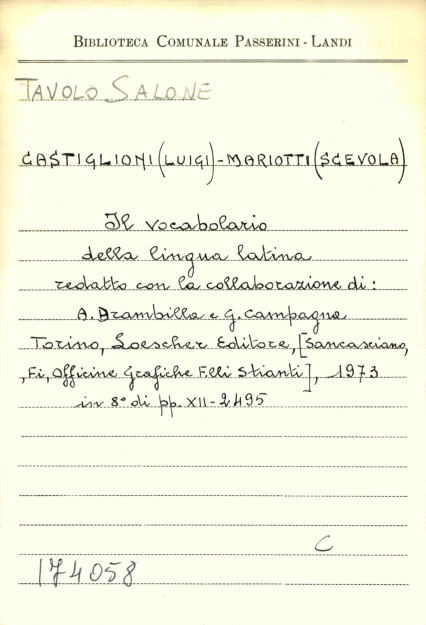 BIBLIOTECA COMUNALE PASSERINI - LANDI
TAVOLO SALONE
CASTIGLIONI (LUIGI) - MARIOTTI (SCEVOLA)
Il vocabolario
della lingua latina
redatto con la collaborazione di:
A. Brambilla e G. Campagna
Torino, Loescher Editore, [Sancasciano,
, Fi, Officine Grafiche F.lli Stianti], 1973
in 8° di pp. XII-2495
C
174058